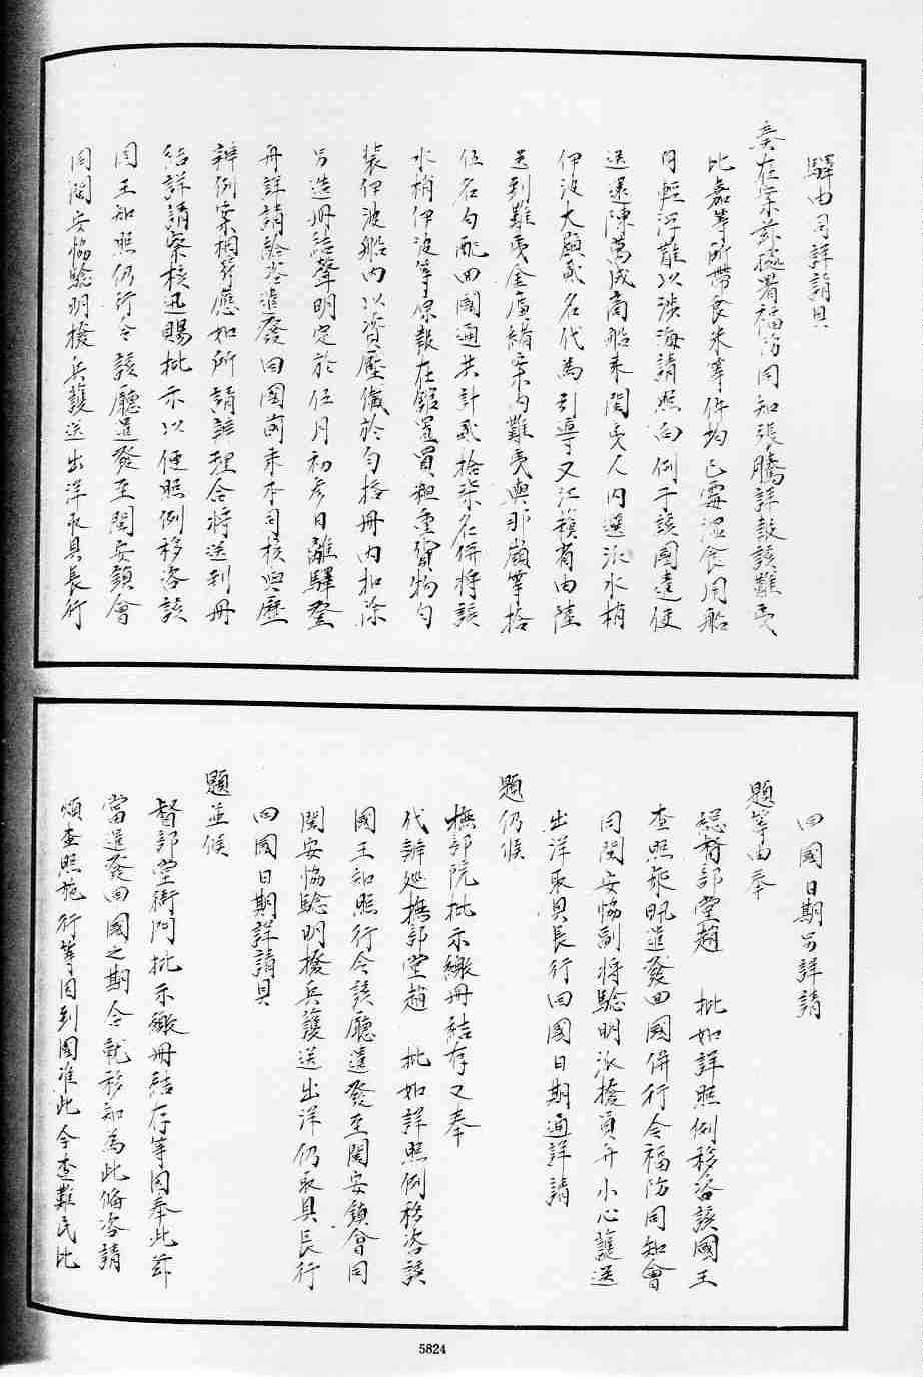 驛由同詳請具
奏在案茲據署福防同知張騰詳該難夷
比嘉等所帶食米等件均已霉濕食用船
身輕浮難以涉海請照向例于該國進使
送還陳萬成商船來閩夷人內選派水梢
伊波大顧貳名代為引導又江蘇省由陸
送到難夷金廣緒案內難夷與那嶺等拾
伍名勻配回國通共計貳拾柒名併將該
水梢伊波等保報在館置買粗重貨物勻
裝伊波船內以資壓儎於勻搭冊內扣除
另造冊結聲明定於伍月初參日離驛登
舟詳請給咨遣發回國前來本司核與歷
辦例案相符應如所請辦理合將送到冊
結詳請察核迅賜批示以便照例移咨該
國王知照仍行令該廳遣發至閩安鎮會
同閩安協驗明撥兵護送出洋取具長行
回國日期另詳請
題等由奉
總督部堂趙 批如詳照例移咨該國王
查照飛飭遣發回國併行令福防同知會
同閩安協副將驗明派撥員弁小心護送
出洋取具長行回國日期通詳請
題仍候
撫部院批示繳冊結存又奉
代辦巡撫部堂趙 批如詳照例移咨該
國王知照行令該廳遣發至閩安鎮會同
閩安協驗明撥兵護送出洋仍取具長行
回國日期詳請具
題並候
督部堂衙門批示繳冊結存等因奉此茲
當遣發回國之期合就移知為此備咨請
煩查照施行等因到國准此今查難民比
5824